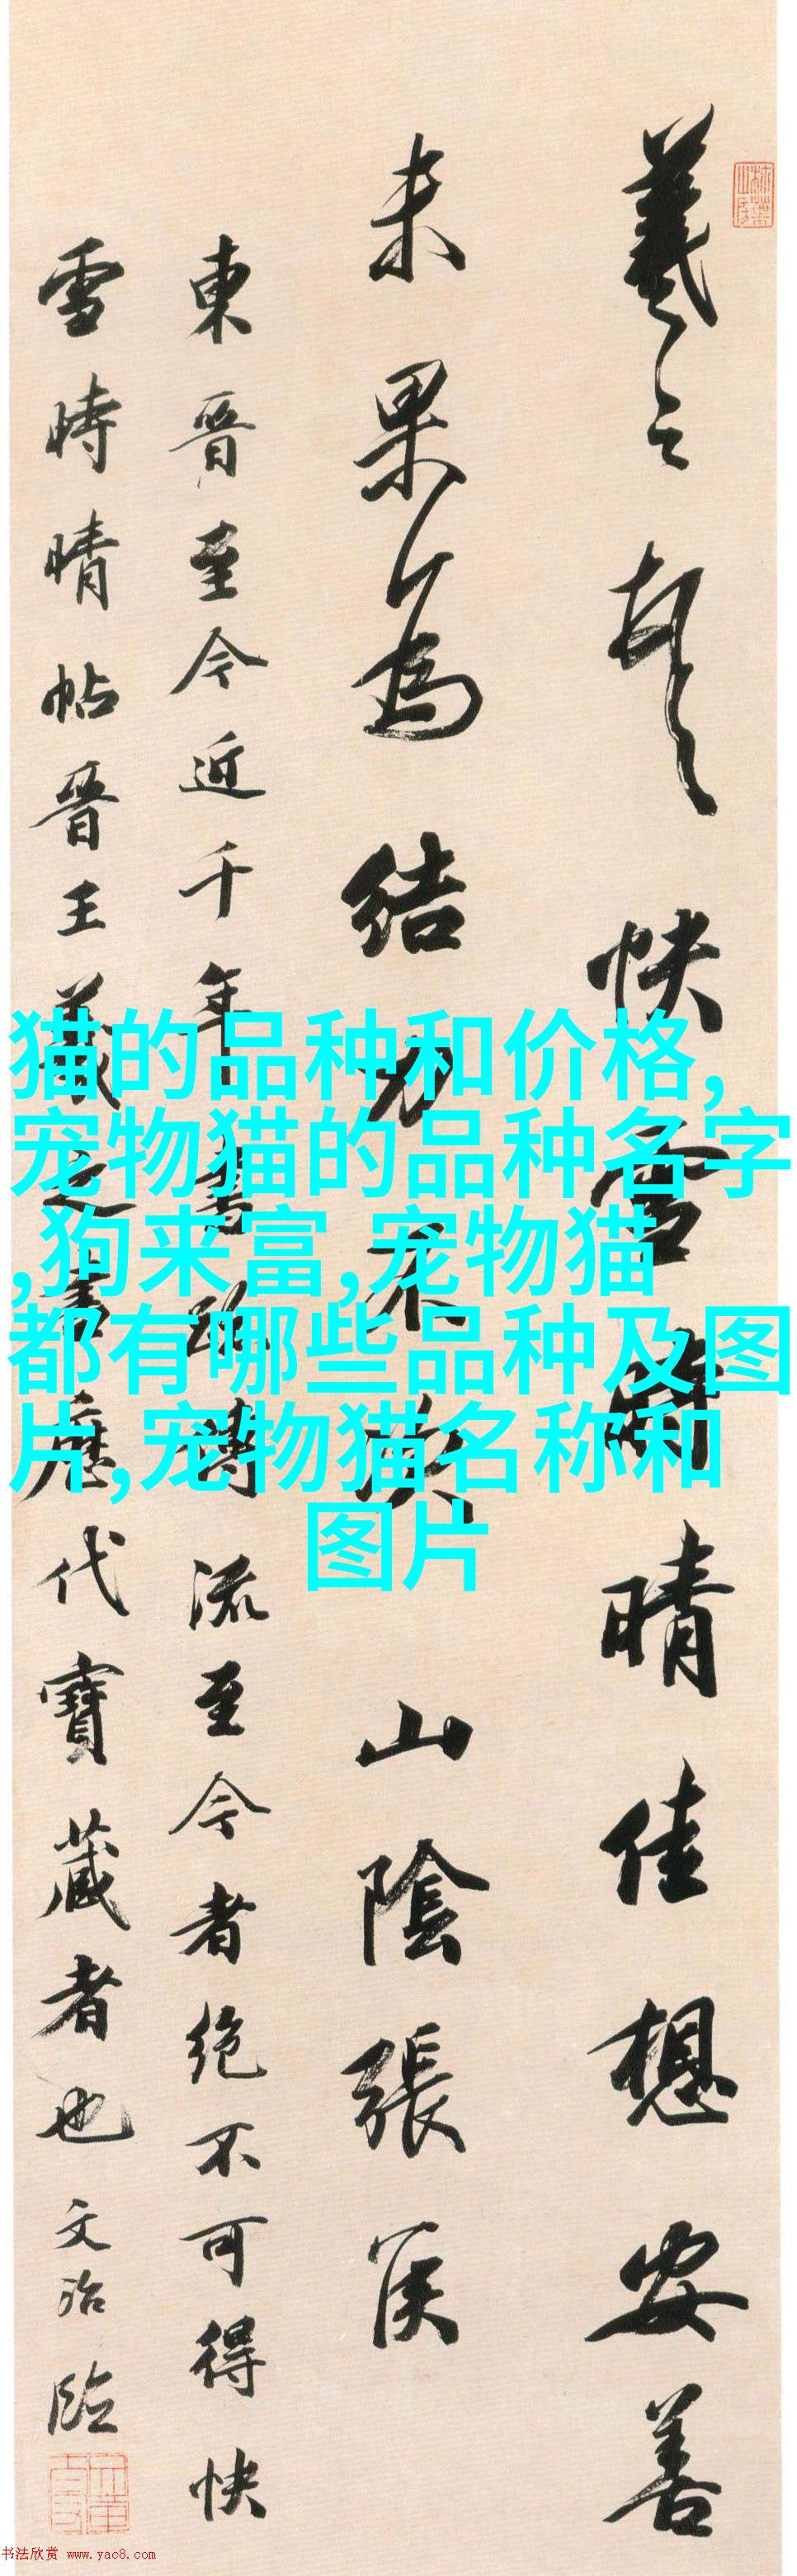 羲之頓首快雪時晴佳想安善
未果為結力不次山陰張侯
東晉至今近千年書跡傳流至今者絕不可得快
雪時晴帖晉王羲之書歷代寶藏者也文治臨
猫的品种和价格,
宠物猫的品种名字
,狗来富,宠物猫
都有哪些品种及图
片,宠物猫名称和
图片
书法欣赏 www.yac8.com